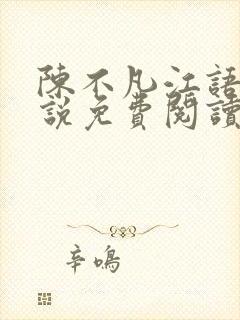 陳不凡江語
說免費閱讀
辛鳴